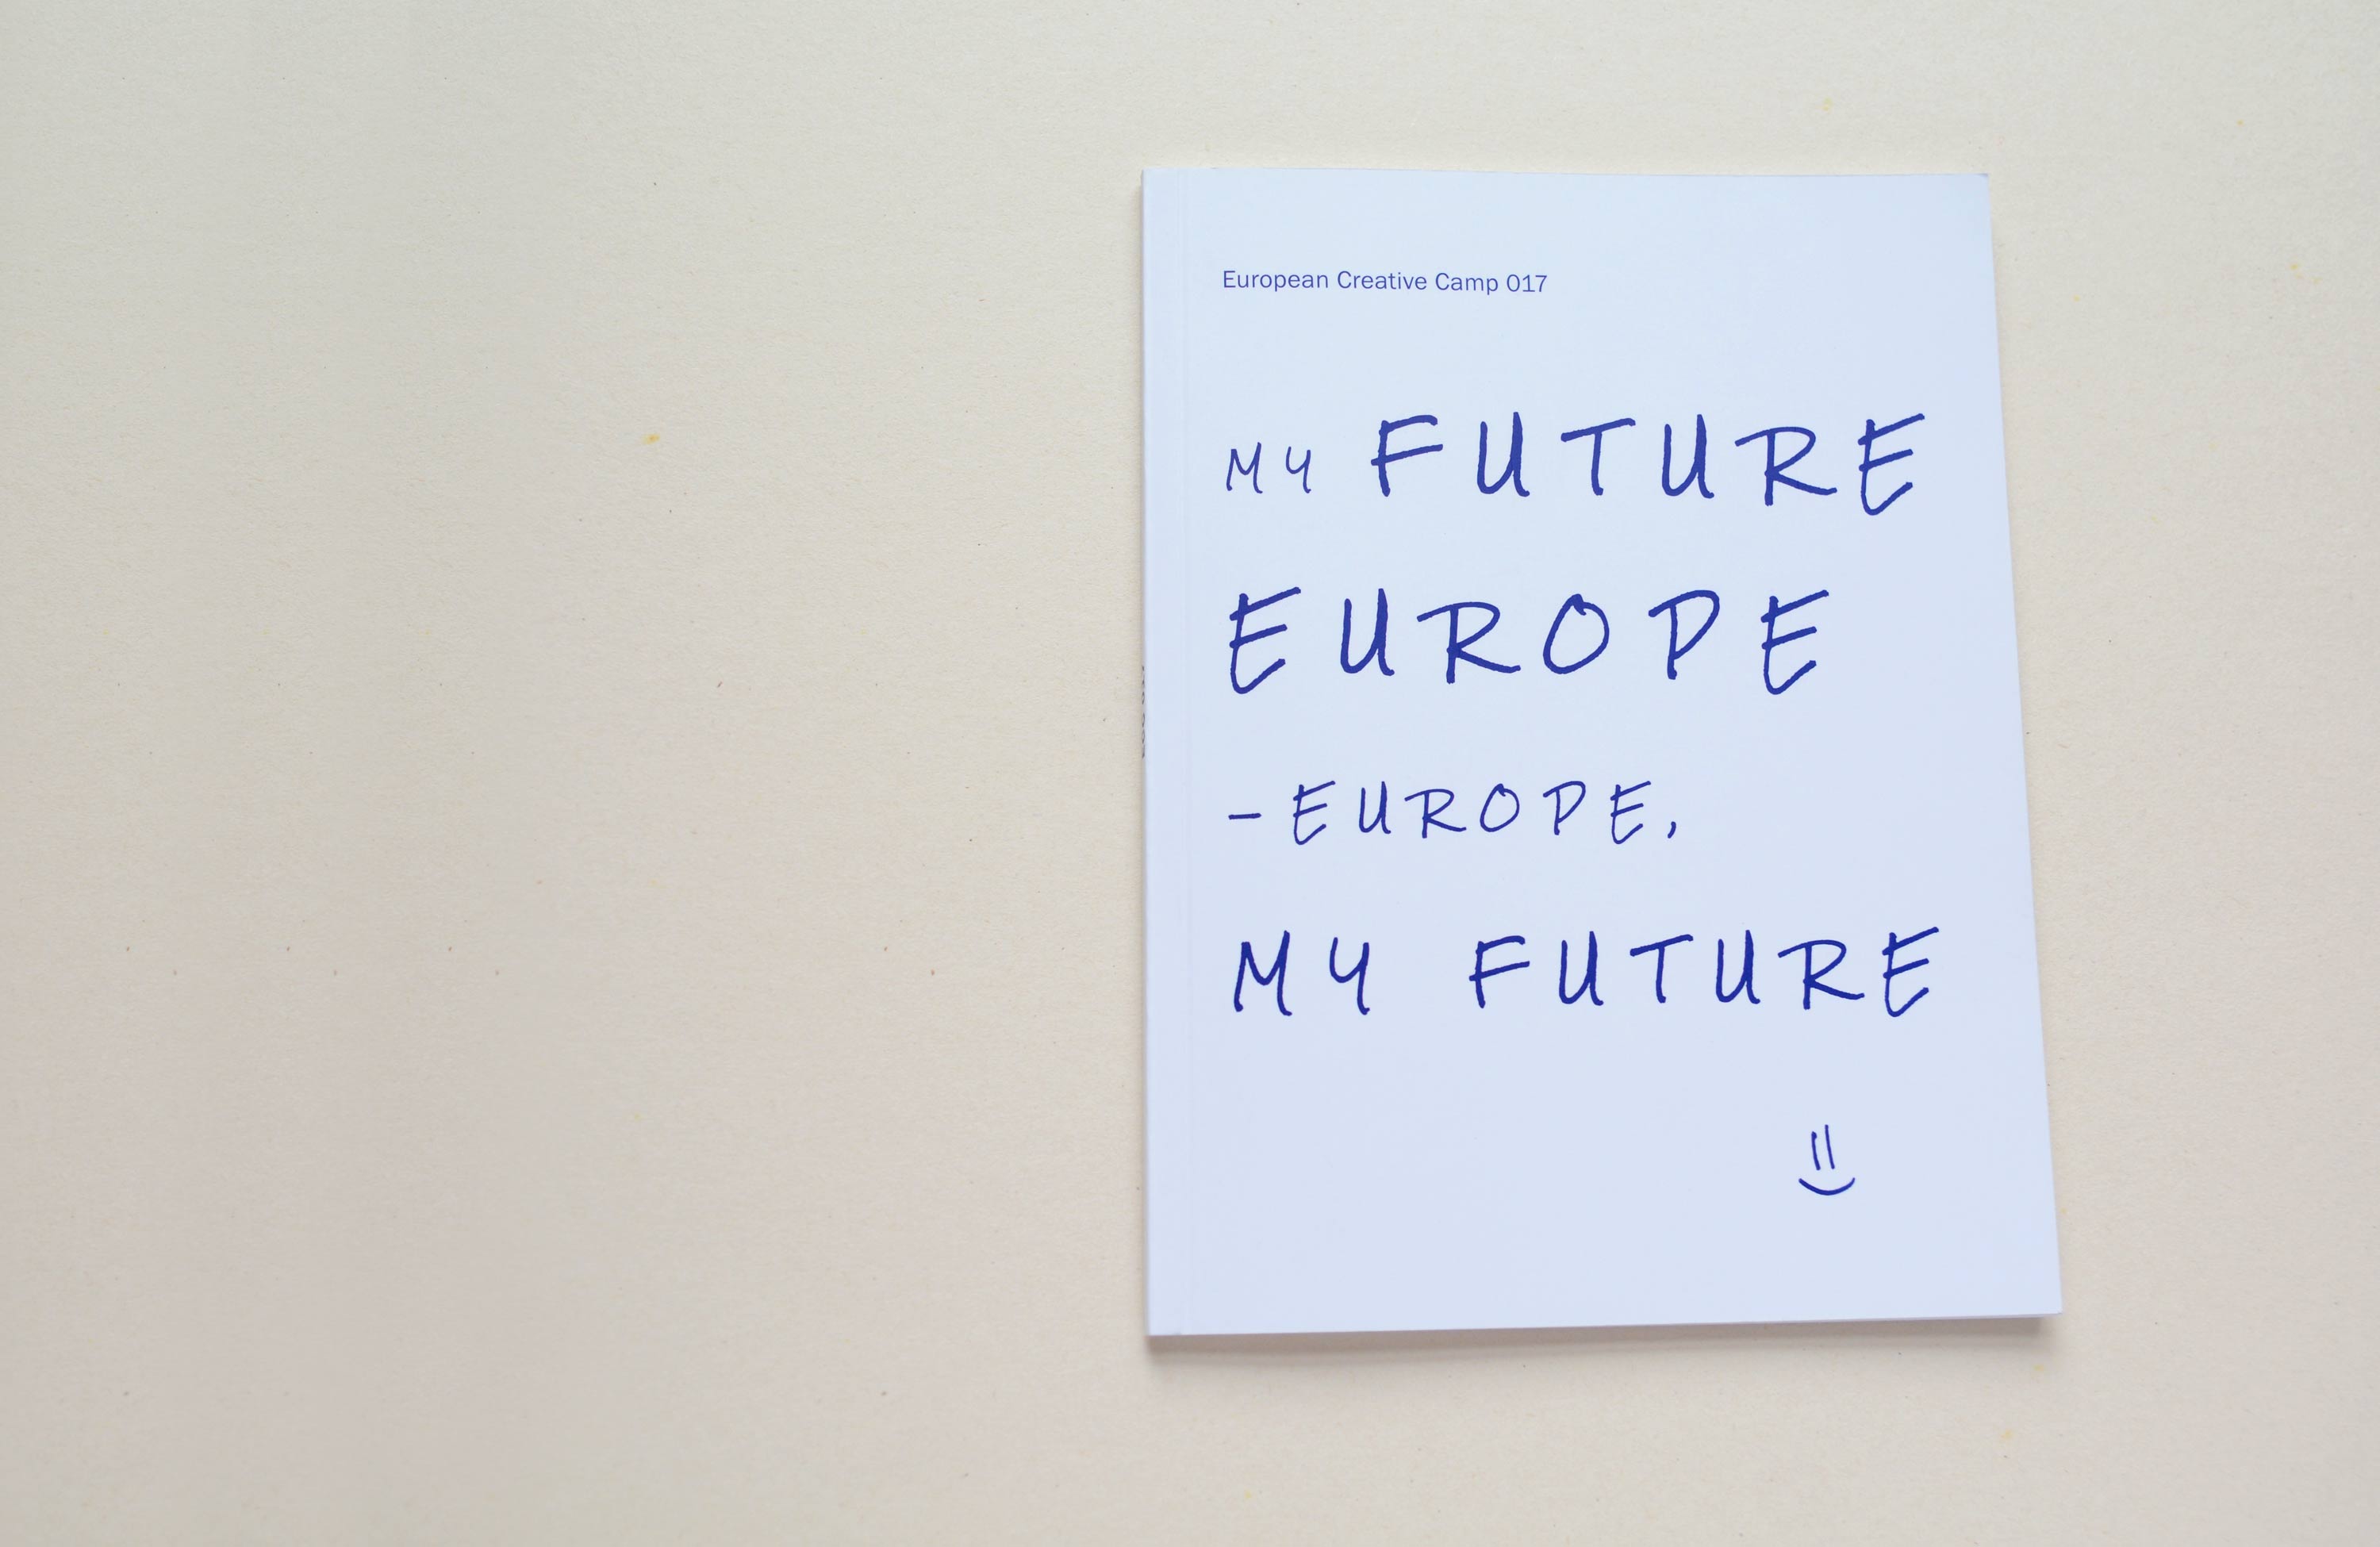 European Creative Camp 017
MY FUTURE
EUROPE
– EUROPE,
MY FUTURE